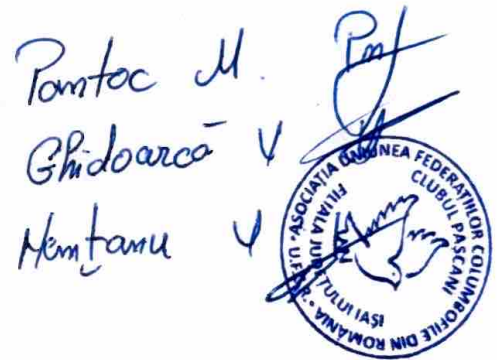 Pantoc M.
Ghidoarcă V
Nemţanu V
ASOCIAŢIA UNIUNEA FEDERAŢIILOR COLUMBOFILE DIN ROMÂNIA * U.F.C.R. *
CLUBUL PAŞCANI
FILIALA JUDEŢULUI IAŞI